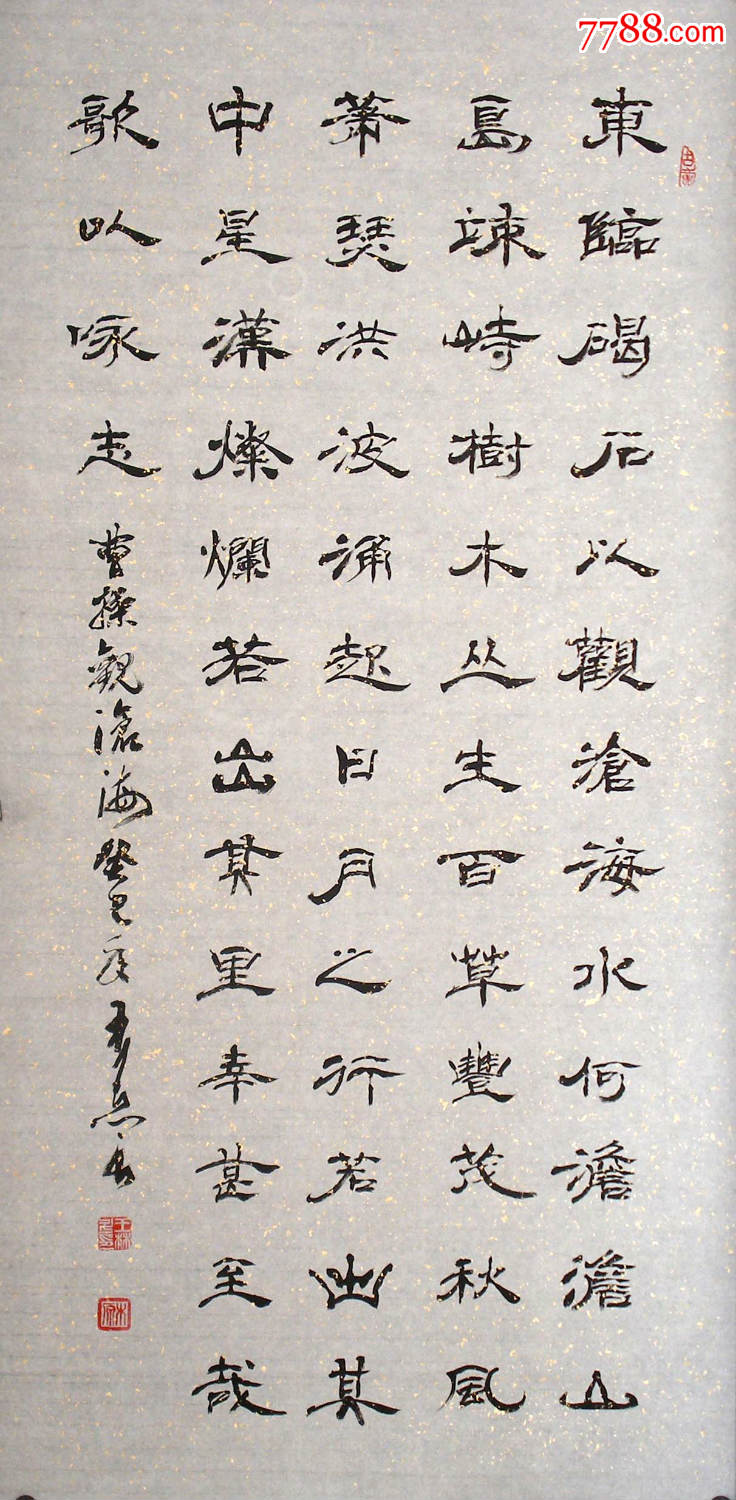 7788.com
東臨碣石以觀滄海水何澹澹山
島竦峙樹木丛生百草豐茂秋風
蕭瑟洪波涌起日月之行若出其
中星漢燦爛若出其里幸甚至哉
歌以咏志 曹操觀滄海 癸巳年